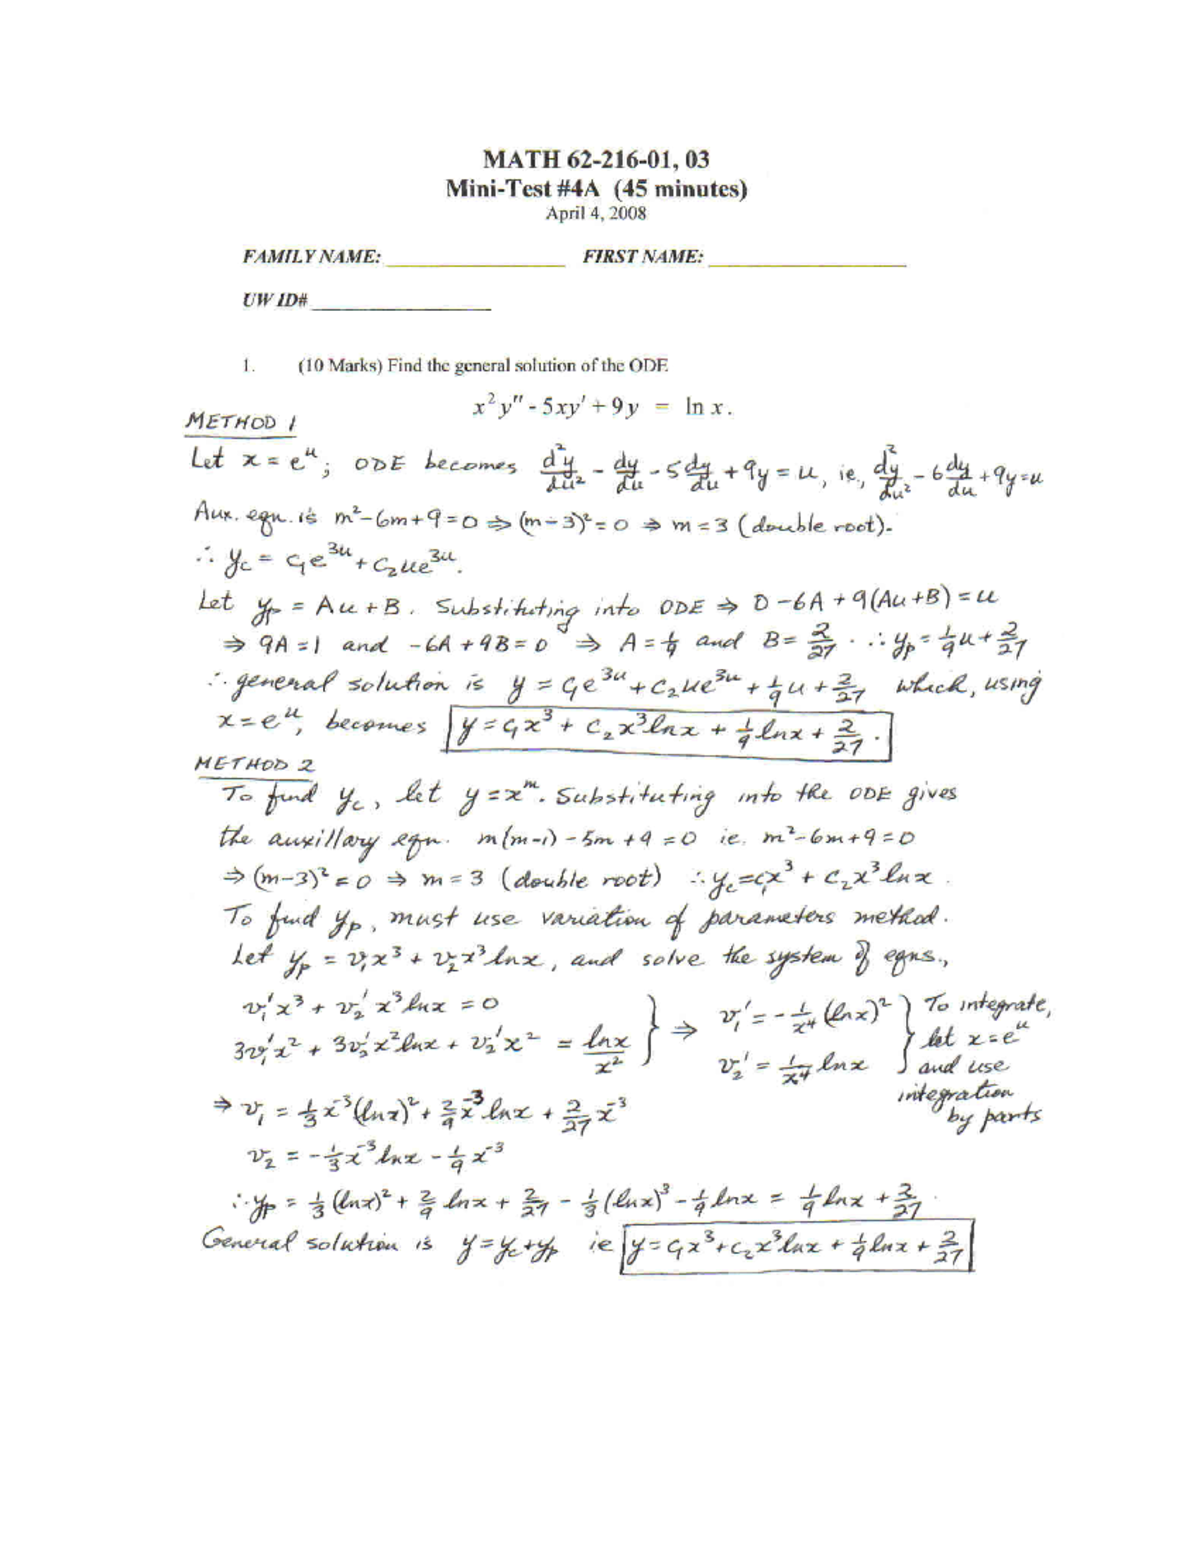 MATH 62-216-01, 03
Mini-Test #4A (45 minutes)
April 4, 2008
FAMILY NAME: ____________ FIRST NAME: ____________
UW ID# ____________
1. (10 Marks) Find the general solution of the ODE
x²y″ - 5xy′ + 9y = ln x.
METHOD 1
Let x = eᵘ; ODE becomes d²y/du² - dy/du - 5dy/du + 9y = u, ie, d²y/du² - 6dy/du + 9y = u
Aux. eqn. is m² - 6m + 9 = 0 ⇒ (m-3)² = 0 ⇒ m = 3 (double root).
∴ y_c = c₁e³ᵘ + c₂ue³ᵘ.
Let y_p = Au + B. Substituting into ODE ⇒ 0 - 6A + 9(Au+B) = u
⇒ 9A = 1 and -6A + 9B = 0 ⇒ A = 1/9 and B = 2/27. ∴ y_p = 1/9 u + 2/27
∴ general solution is y = c₁e³ᵘ + c₂ue³ᵘ + 1/9 u + 2/27 which, using
x = eᵘ, becomes y = c₁x³ + c₂x³lnx + 1/9 lnx + 2/27.
METHOD 2
To find y_c, let y = xᵐ. Substituting into the ODE gives
the auxillary eqn. m(m-1) - 5m + 9 = 0 ie. m² - 6m + 9 = 0
⇒ (m-3)² = 0 ⇒ m = 3 (double root) ∴ y_c = c₁x³ + c₂x³lnx.
To find y_p, must use variation of parameters method.
Let y_p = v₁x³ + v₂x³lnx, and solve the system of eqns.,
v₁′x³ + v₂′x³lnx = 0
3v₁′x² + 3v₂′x²lnx + v₂′x² = lnx/x²
} ⇒ v₁′ = -1/x⁴ (lnx)²
v₂′ = 1/x⁴ lnx
} To integrate,
let x = eᵘ
and use
integration
by parts
⇒ v₁ = 1/3 x⁻³(lnx)² + 2/9 x⁻³lnx + 2/27 x⁻³
v₂ = -1/3 x⁻³lnx - 1/9 x⁻³
∴ y_p = 1/3 (lnx)² + 2/9 lnx + 2/27 - 1/3 (lnx)³ - 1/9 lnx = 1/9 lnx + 2/27.
General solution is y = y_c + y_p ie y = c₁x³ + c₂x³lnx + 1/9 lnx + 2/27